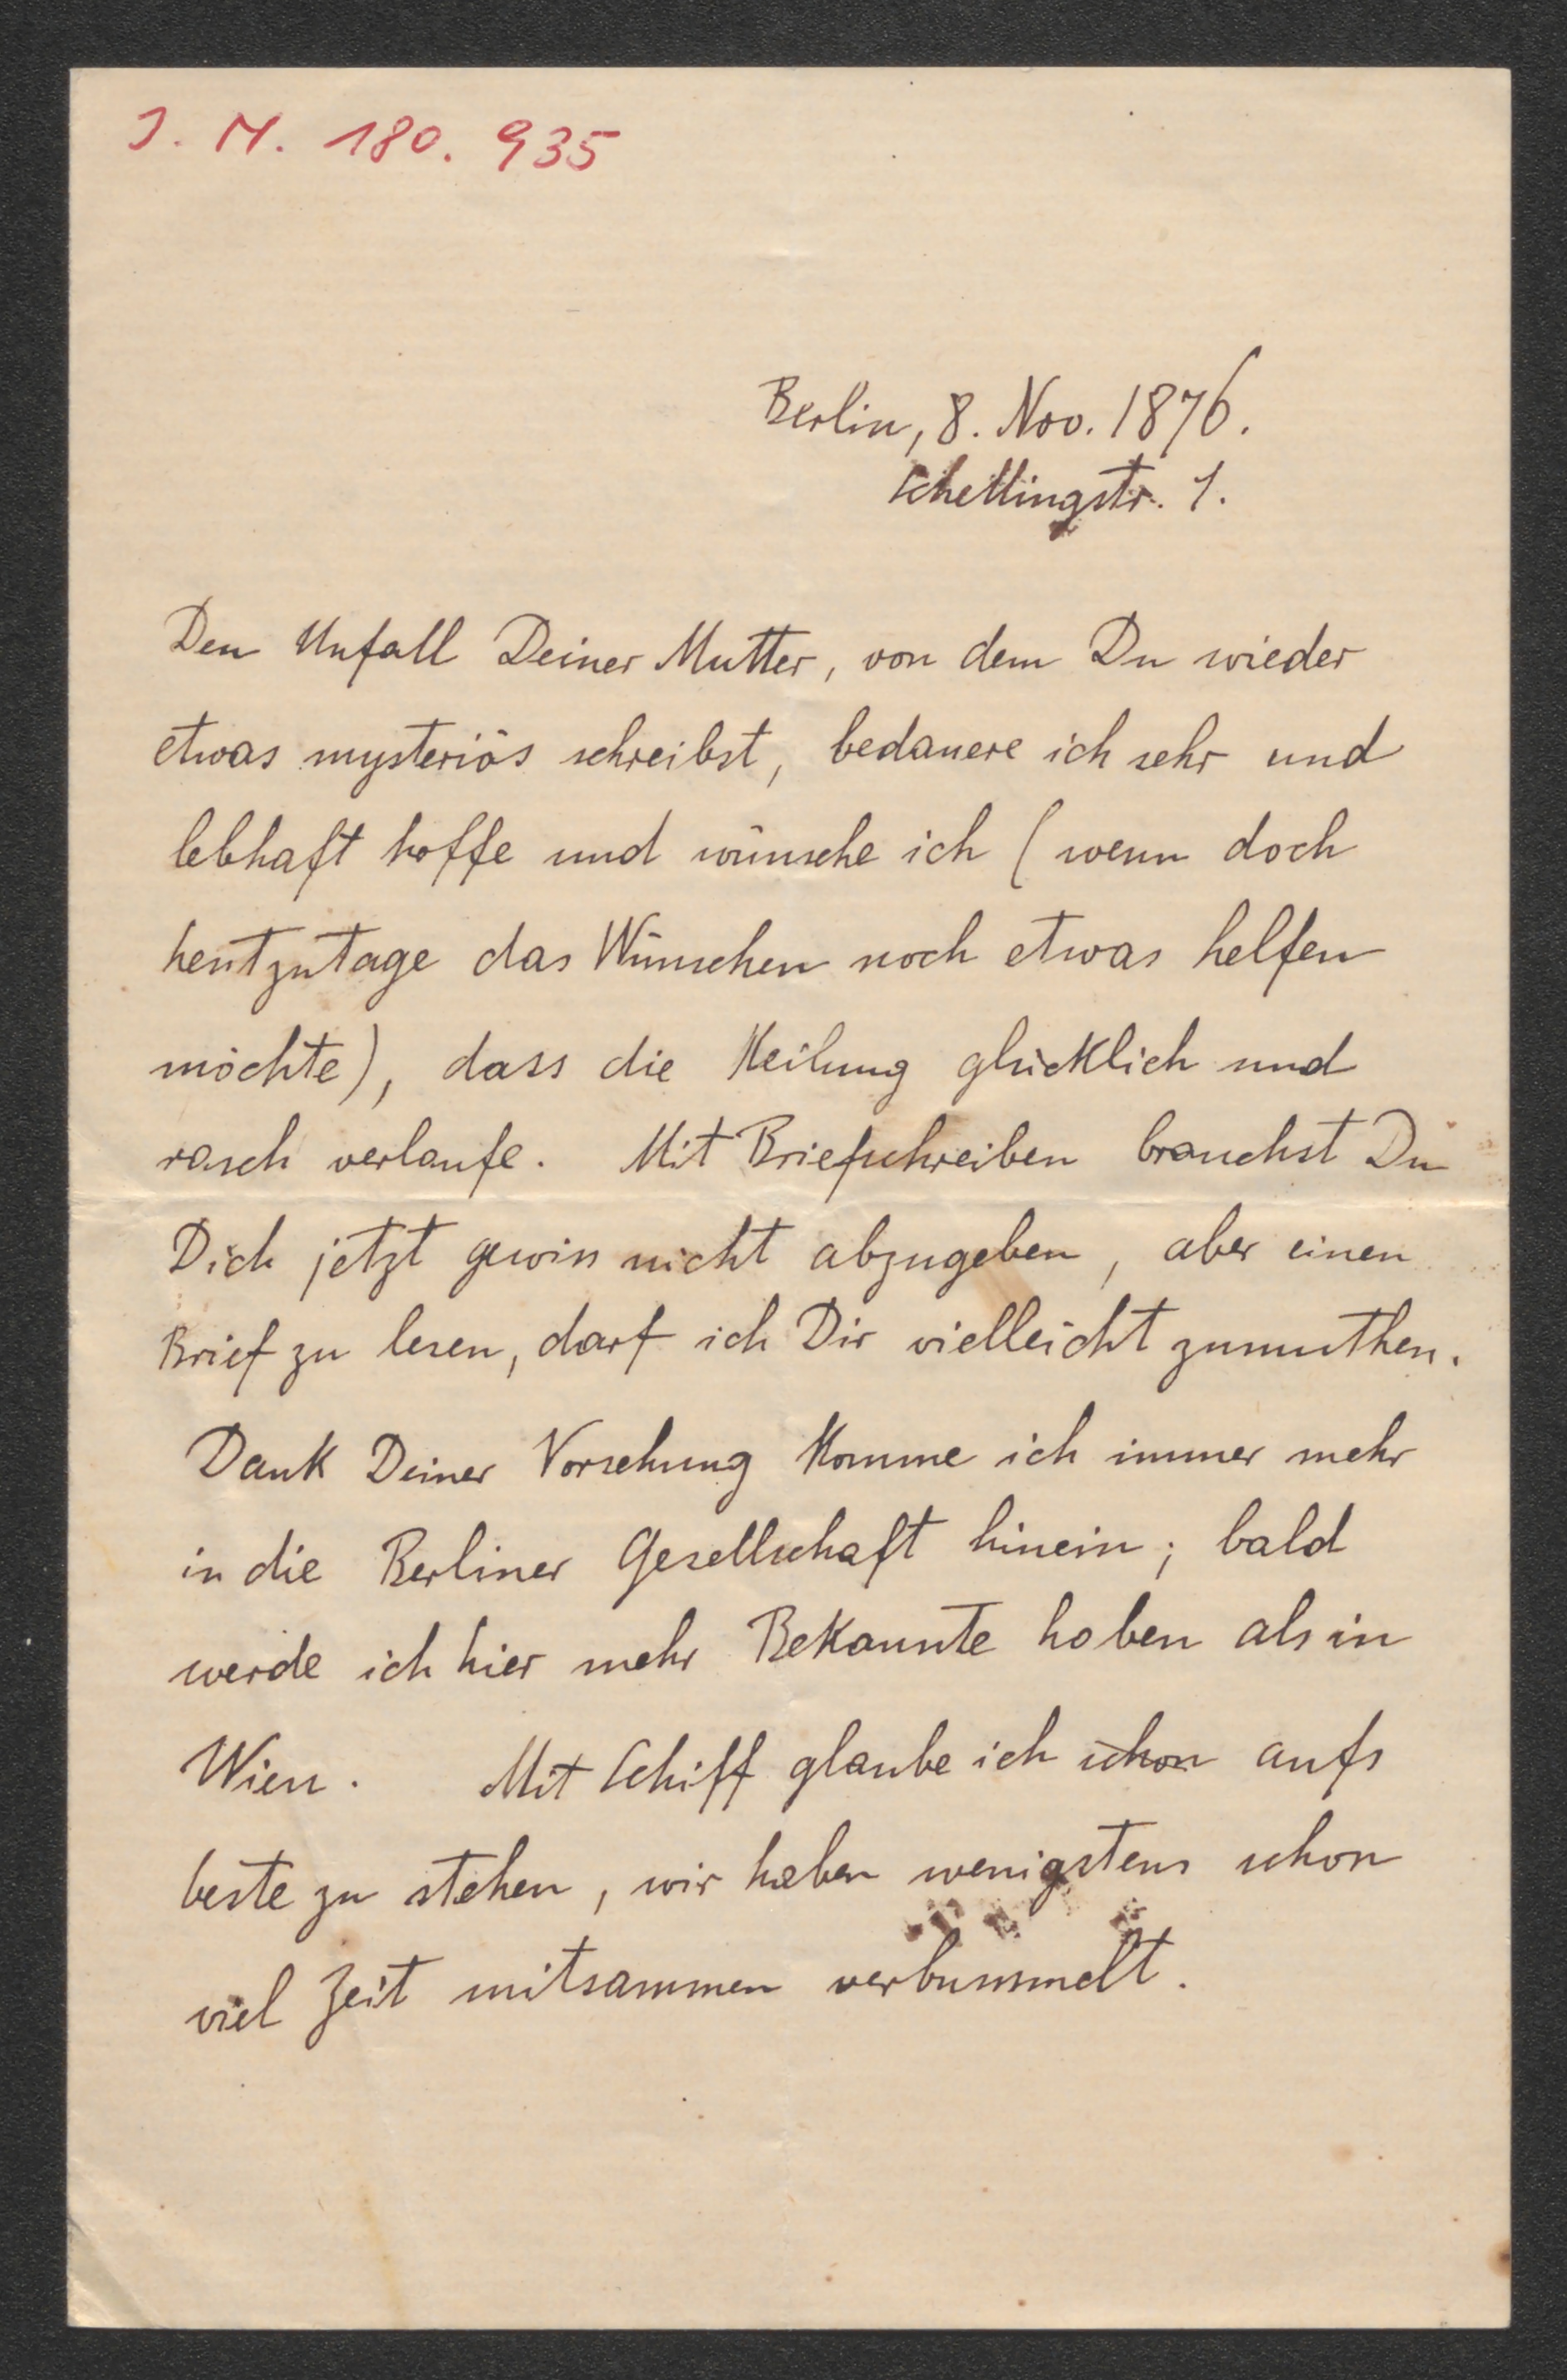 J. N. 180. 935
Berlin, 8. Nov. 1876.
Schellingstr. 1.
Den Unfall Deiner Mutter, von dem Du wieder
etwas mysteriös schreibst, bedauere ich sehr und
lebhaft hoffe und wünsche ich (wenn doch
heutzutage das Wünschen noch etwas helfen
möchte), dass die Heilung glücklich und
rasch verlaufe. Mit Briefschreiben brauchst Du
Dich jetzt gewiss nicht abzugeben, aber einen
Brief zu lesen, darf ich Dir vielleicht zumuthen.
Dank Deiner Vorsehung komme ich immer mehr
in die Berliner Gesellschaft hinein; bald
werde ich hier mehr Bekannte haben als in
Wien. Mit Schiff glaube ich schon aufs
beste zu stehen, wir haben wenigstens schon
viel Zeit mitsammen verbummelt.